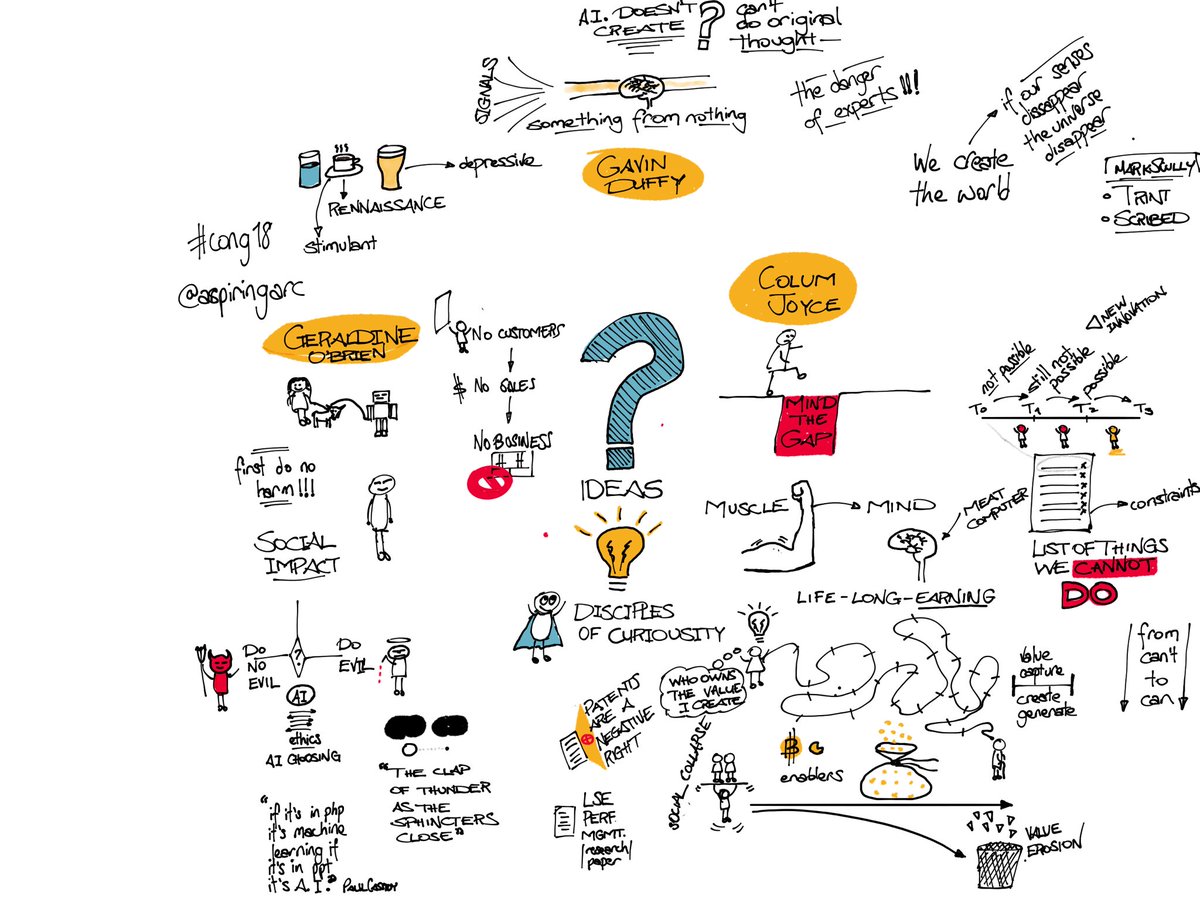 A.I. DOESN'T
CREATE
can't
do original
thought
SIGNALS
something from nothing
the danger
of experts!!!
if our senses
dissappear
the universe
disappear
We create
the world
MARKSCULLY
TRINT
SCRIBED
depressive
RENNAISSANCE
stimulant
GAVIN
DUFFY
#cong18
@aspiringarc
GERALDINE
O'BRIEN
NO CUSTOMERS
$ NO SALES
NO BUSINESS
first do no
harm!!!
SOCIAL
IMPACT
DO
NO
EVIL
?
DO
EVIL
AI
ethics
AI CHOOSING
"THE CLAP
OF THUNDER
AS THE
SPHINCTERS
CLOSE"
"if it's in php
it's machine
learning if
it's in ppt
it's A.I."
?
IDEAS
DISCIPLES
OF CURIOUSITY
PATENTS
ARE A
NEGATIVE
RIGHT
LSE
PERF
MGMT.
research/
paper
COLUM
JOYCE
MIND
THE
GAP
NEW
INNOVATION
not possible
still not
possible
possible
T0
T1
T2
T3
constraints
LIST OF THINGS
WE CANNOT
DO
MUSCLE
MIND
MEAT
COMPUTER
LIFE-LONG-EARNING
WHO OWNS
THE VALUE
I CREATE
SOCIAL COLLAPSE
B
enablers
Value
capture
create
generate
from
can't
to
can
VALUE
EROSION